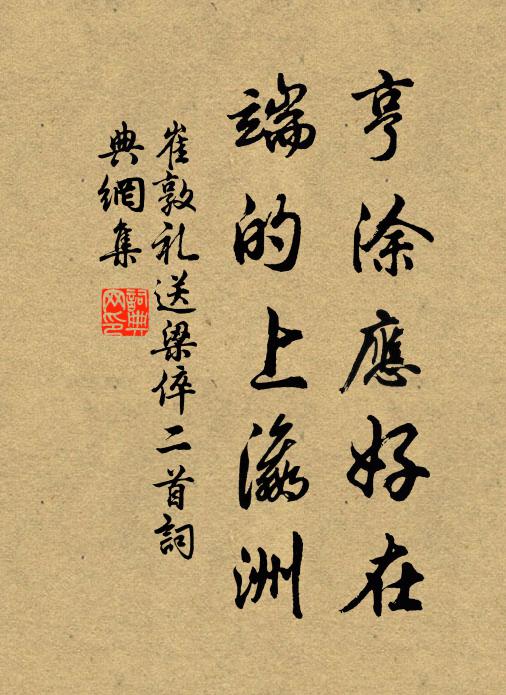 亨涂應好在
端的上瀛洲
崔敦礼送梁倅二首詞
典網集
詞典网印